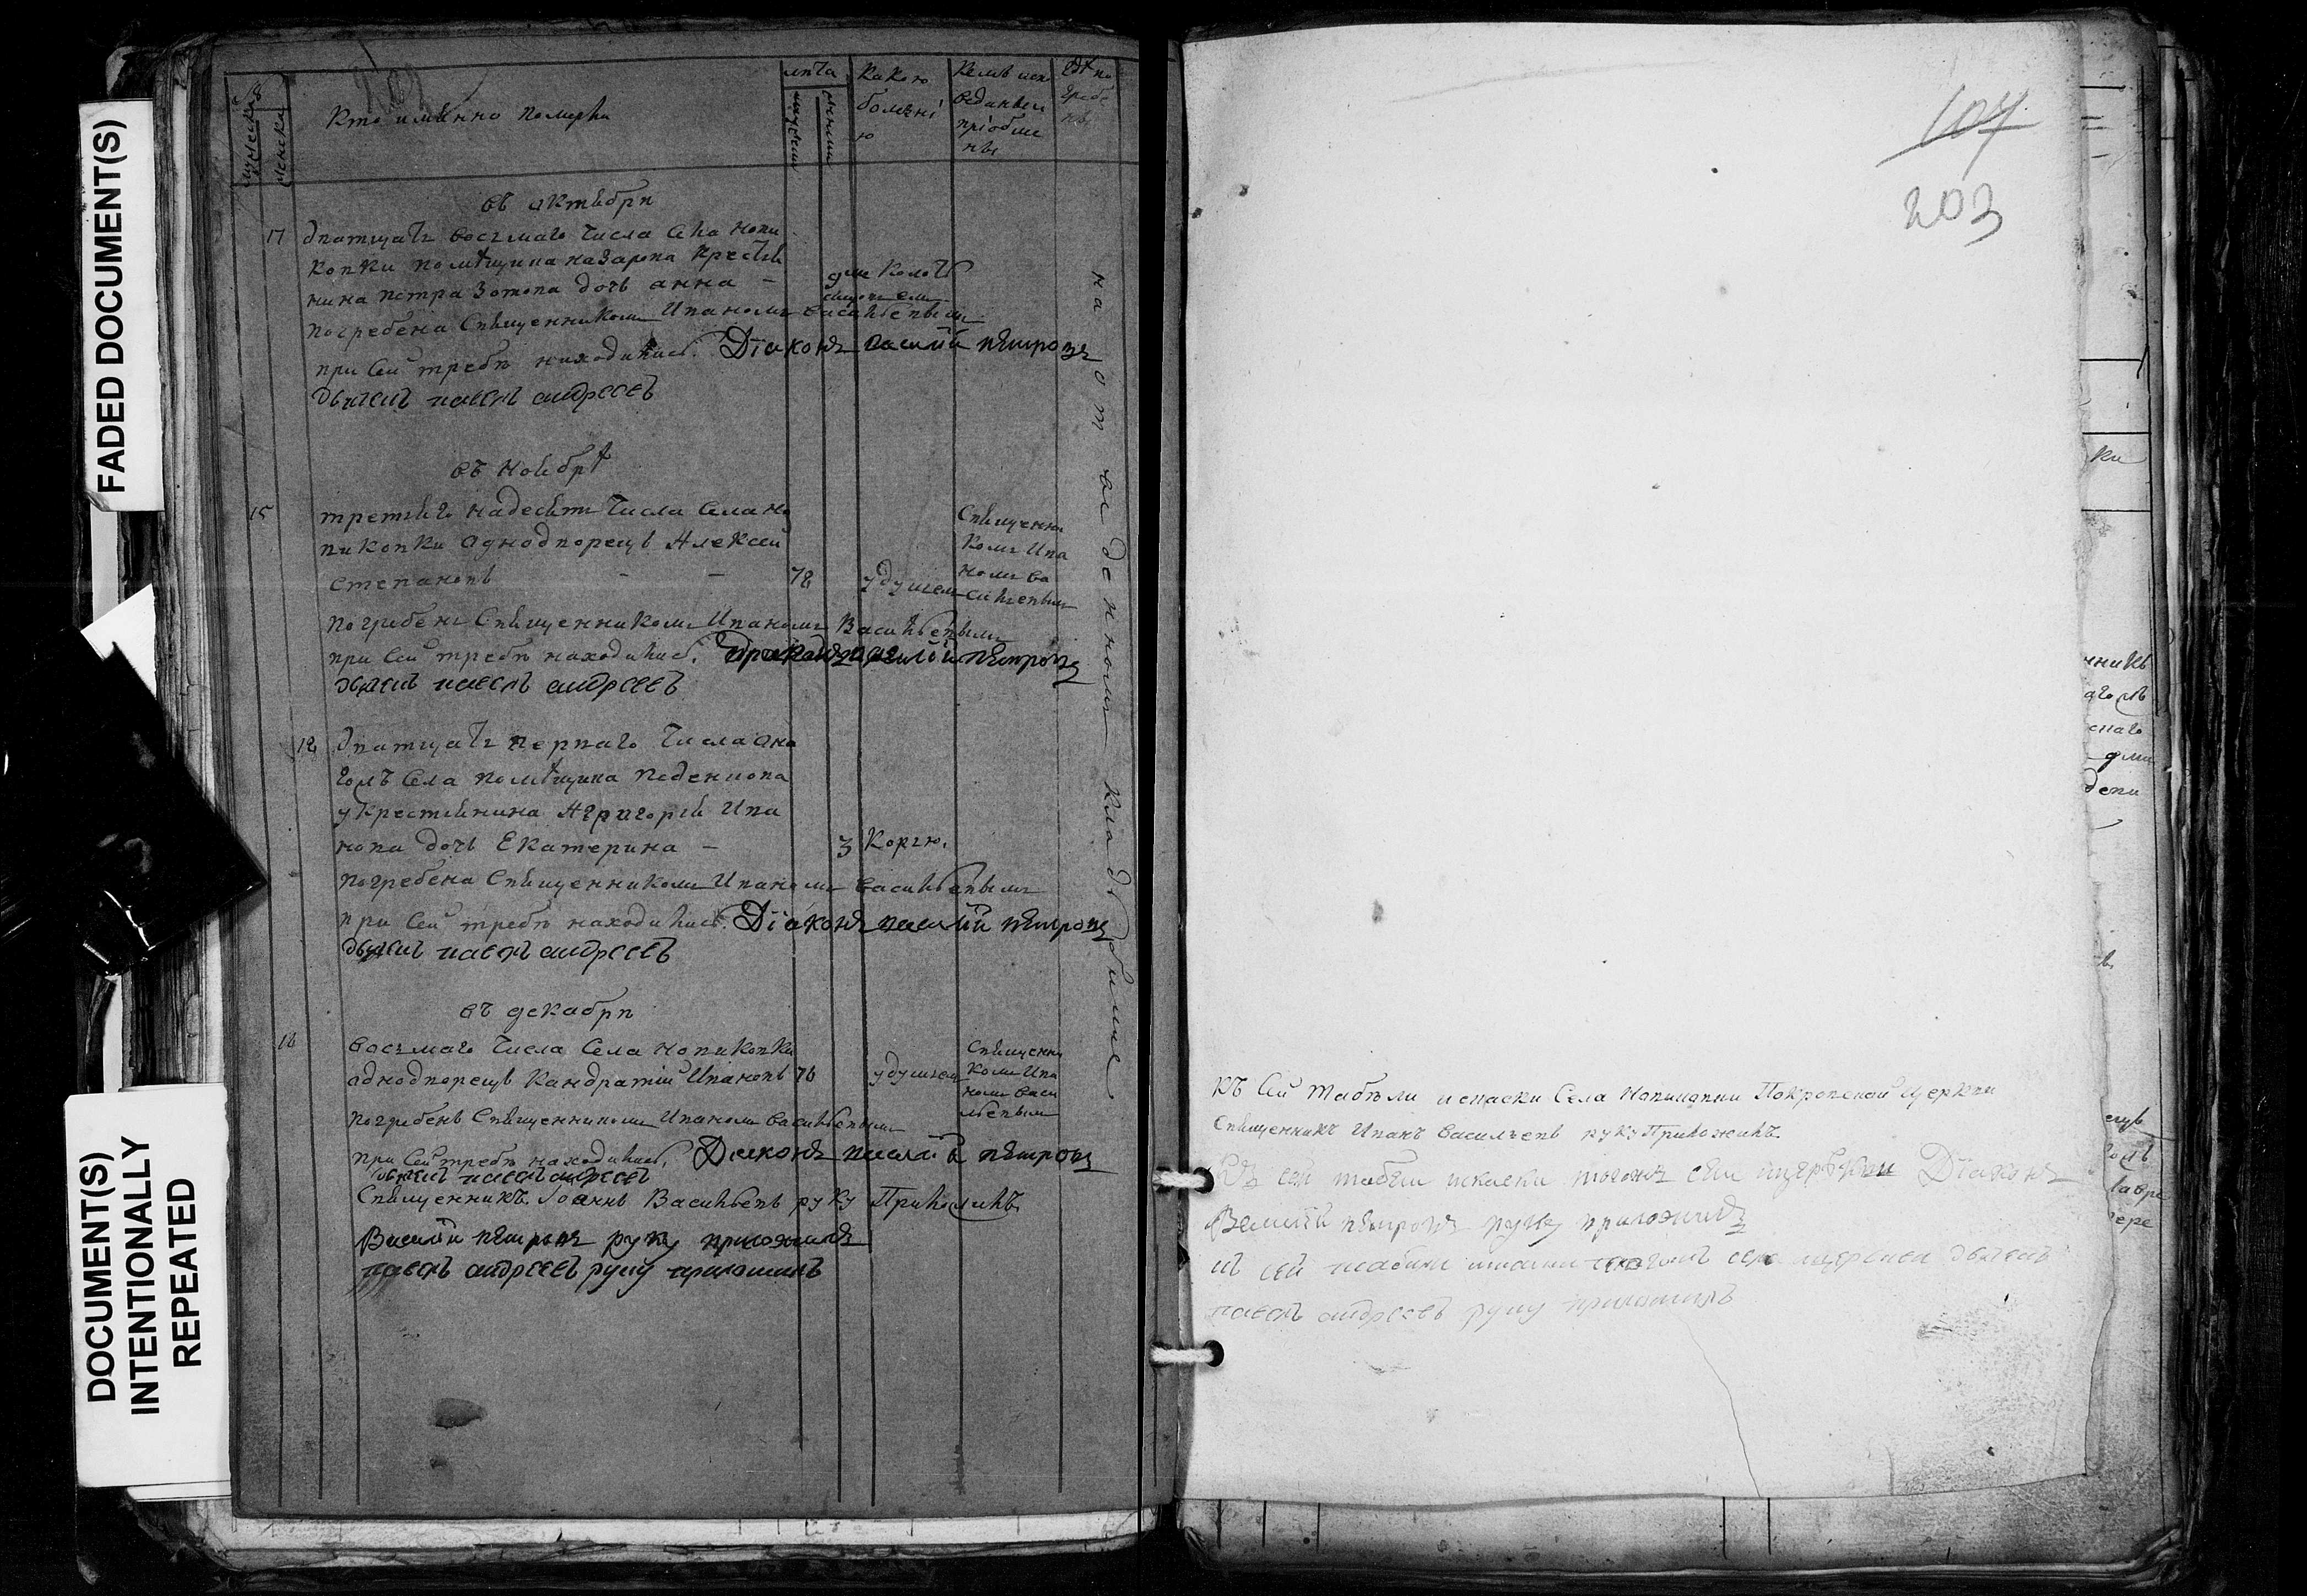 FADED DOCUMENT(S)
DOCUMENT(S)
INTENTIONALLY
REPEATED
мужеска
женска
кто имянно померли
лѣта
какою
болѣзнi
ю
кемъ исп
приобще
ны
гдѣ по
гребе
ны
въ октябрѣ
17 дватцать восьмаго числа села нови
ковки помѣщика назарова крестья
нина петра зотова дочь анна –
погребена священникомъ Иваномъ васильевымъ
при сей требѣ находились. Дiаконъ василiй петровъ
дьячекъ павелъ андреевъ
въ ноябрѣ
15 третьяго надесять числа села но
виковки аднодворецъ Алексей
степановъ – – 78 удушьем
священни
комъ Ива
номъ ва
сильевым
погребенъ священникомъ Иваномъ Васильевымъ
при сей требѣ находились. Дiаконъ василiй петровъ
дьячекъ павелъ андреевъ
18 дватцать перваго числа
села помѣщика
крестьянина Григорiя Ива
нова дочь Екатерина – 3 Корью.
погребена священникомъ Иваномъ васильевымъ
при сей требѣ находились. Дiаконъ василiй петровъ
дьячекъ павелъ андреевъ
въ декабрѣ
16 восьмаго числа села новиковки
аднодворецъ Кандратiй Ивановъ 76 удушьем
священни
комъ Ива
номъ васи
льевым
погребенъ священникомъ Иваномъ васильевымъ
при сей требѣ находились. Дiаконъ василiй петровъ
дьячекъ павелъ андреевъ
Священникъ Iоаннъ Васильевъ руку Приложилъ
Василiй петровъ руку приложилъ
павелъ андреевъ руку приложилъ
на отведенномъ кладбище
107
203
къ сей табѣли исаски Села Новиковки Покровской церкви
священникъ Иванъ васильевъ руку Приложилъ
къ сей табели исаски тогожъ села церкви Дiаконъ
Василiй петровъ руку приложилъ
къ сей табели тогожъ села церкви дьячекъ
павелъ андреевъ руку приложилъ